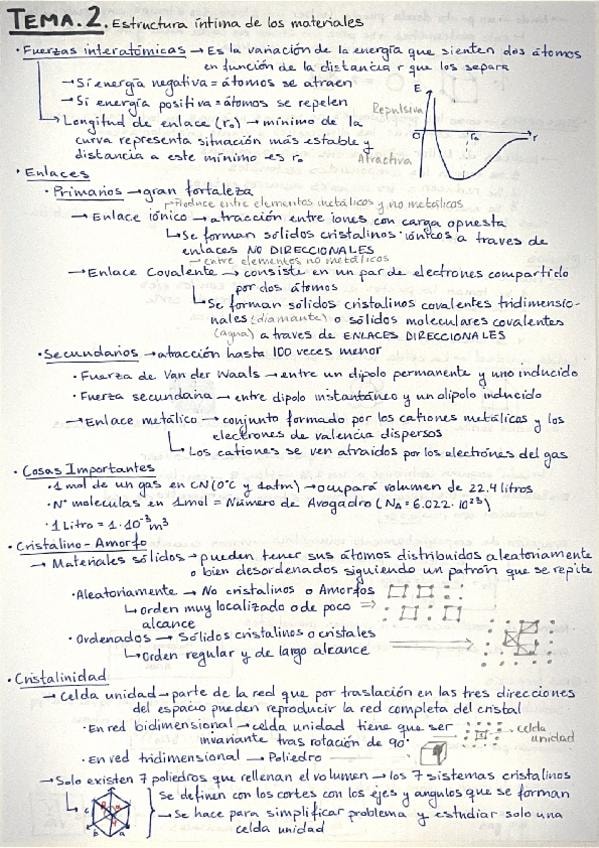 TEMA.2. Estructura íntima de los materiales
· Fuerzas interatómicas → Es la variación de la energía que sienten dos átomos
en función de la distancia r que los separa
→ Si energía negativa = átomos se atraen
→ Si energía positiva = átomos se repelen
→ Longitud de enlace (r₀) → mínimo de la
curva representa situación más estable y
distancia a este mínimo es r₀
E
Repulsiva
0
r₀
r
Atractiva
· Enlaces
· Primarios → gran fortaleza
→ Produce entre elementos metálicos y no metálicos
→ Enlace iónico → atracción entre iones con carga opuesta
↳ Se forman sólidos cristalinos iónicos a traves de
enlaces NO DIRECCIONALES
→ entre elementos no metálicos
→ Enlace Covalente → consiste en un par de electrones compartido
por dos átomos
↳ Se forman sólidos cristalinos covalentes tridimensio-
nales (diamante) o sólidos moleculares covalentes
(agua) a traves de ENLACES DIRECCIONALES
· Secundarios → atracción hasta 100 veces menor
· Fuerza de Van der Waals → entre un dipolo permanente y uno inducido
· Fuerza secundaria → entre dipolo instantáneo y un dipolo inducido
→ Enlace metálico → conjunto formado por los cationes metálicos y los
electrones de valencia dispersos
↳ Los cationes se ven atraidos por los electrones del gas
· Cosas Importantes
· 1 mol de un gas en CN (0°C y 1atm) → ocupará volumen de 22.4 litros
· N° moleculas en 1mol = Número de Avogadro (NA = 6.022 · 10²³)
· 1 Litro = 1·10⁻³ m³
· Cristalino - Amorfo
→ Materiales sólidos → pueden tener sus átomos distribuidos aleatoriamente
o bien desordenados siguiendo un patrón que se repite
· Aleatoriamente → No cristalinos o Amorfos
↳ orden muy localizado o de poco ⇒
alcance
· Ordenados → Sólidos cristalinos o cristales
↳ Orden regular y de largo alcance
· Cristalinidad
→ Celda unidad → parte de la red que por traslación en las tres direcciones
del espacio pueden reproducir la red completa del cristal
· En red bidimensional → celda unidad tiene que ser
invariante tras rotación de 90°
celda
unidad
· En red tridimensional → Poliedro
→ Solo existen 7 poliedros que rellenan el volumen → los 7 sistemas cristalinos
↳ Se definen con los cortes con los ejes y angulos que se forman
c
b
a
→ Se hace para simplificar problema y estudiar solo una
celda unidad